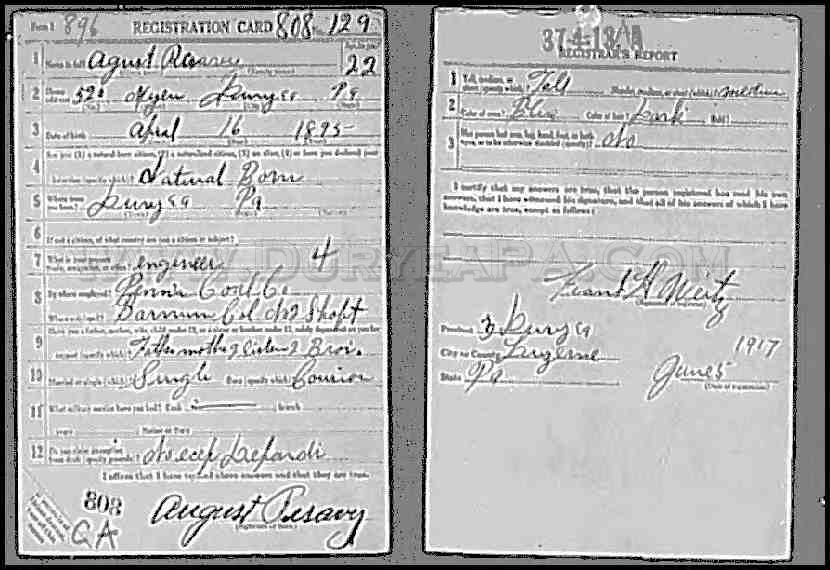 Form 1 896 REGISTRATION CARD 808 No. 129
1 Name in full August Pesavy Age, in yrs. 22
2 Home address 520 Duryea Pa
3 Date of birth April 16 1895
4 Are you (1) a natural born citizen, (2) a naturalized citizen, (3) an alien, (4) or have you declared your
intention (specify which)? Natural Born
5 Where were you born? Duryea Pa
6 If not a citizen, of what country are you a citizen or subject?
7 What is your present trade, occupation, or office? engineer 4
8 By whom employed? Penn'a Coal Co
Where employed? Barnum Col No 2 Shaft
9 Have you a father, mother, wife, child under 12, or a sister or brother under 12, solely dependent on you for
support (specify which)? Father mother 2 sisters 2 Bros.
10 Married or single (which)? Single Race (specify which)?
11 What military service have you had? Rank branch
years Nation or State
12 Do you claim exemption from draft (specify grounds)?
I affirm that I have verified above answers and that they are true.
808
CA
August Pesavy
37-4-13/A
REGISTRAR'S REPORT
1 Tall, medium, or short (specify which)? Tall Slender, medium, or stout (which)? medium
2 Color of eyes? Blue Color of hair? Dark Bald?
3 Has person lost arm, leg, hand, foot, or both
eyes, or is he otherwise disabled (specify)? No
I certify that my answers are true, that the person registered has read his own
answers, that I have witnessed his signature, and that all of his answers of which I have
knowledge are true, except as follows:
Precinct 3 Duryea
City or County Luzerne 1917
State Pa June 5
(Date of registration)
WWW.DURYEAPA.COM